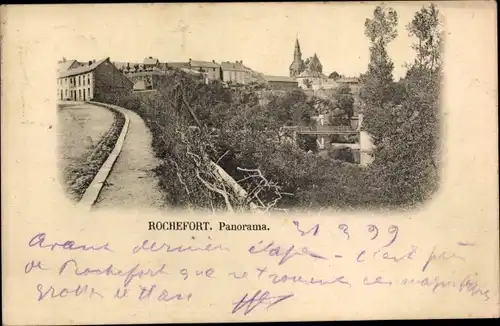 ROCHEFORT. Panorama.
31 8 99
Avant dernière étape, c'est près
de Rochefort que se trouvent ces magnifiques
grottes de Han